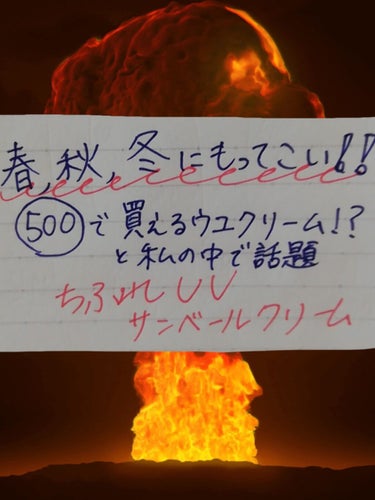 春,秋,冬にもってこい!!
500で買えるウユクリーム!?
と私の中で話題
ちふれUV
サンベールクリーム